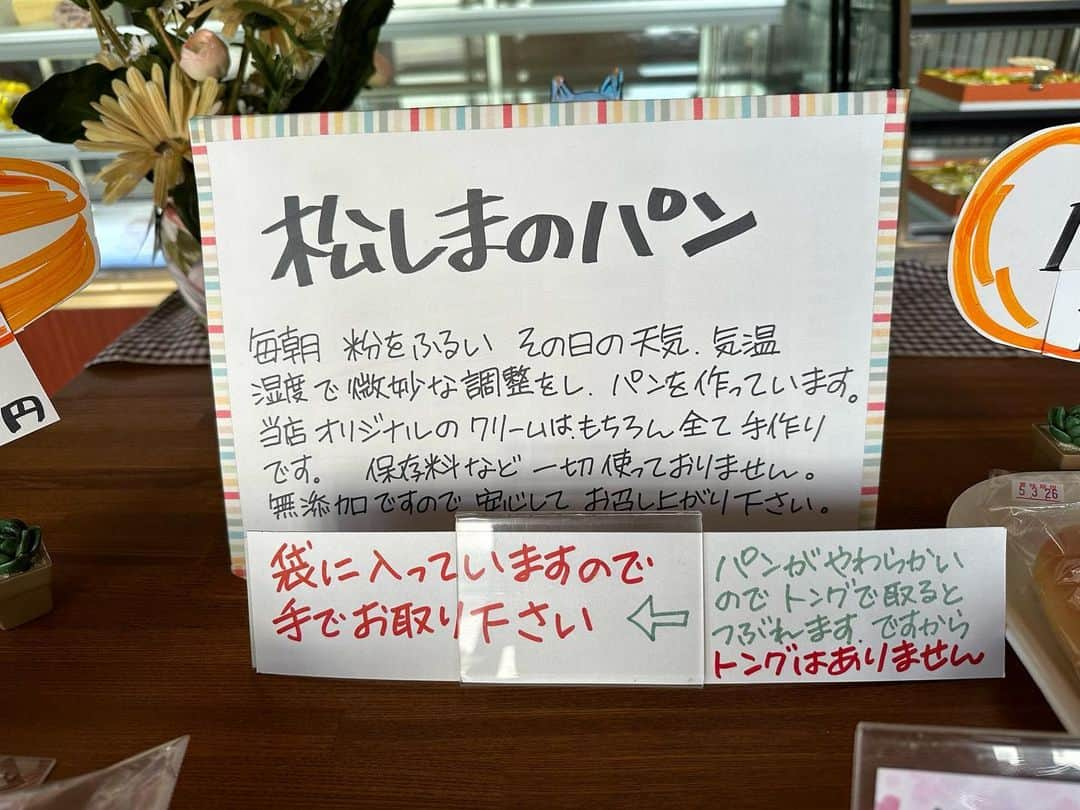 松しまのパン
毎朝 粉をふるい その日の天気、気温
湿度で微妙な調整をし、パンを作っています。
当店オリジナルのクリームは、もちろん全て手作り
です。 保存料など一切使っておりません。
無添加ですので安心してお召し上がり下さい。
袋に入っていますので
手でお取り下さい
←
パンがやわらかい
のでトングで取ると
つぶれます、ですから
トングはありません
円
5.3.26